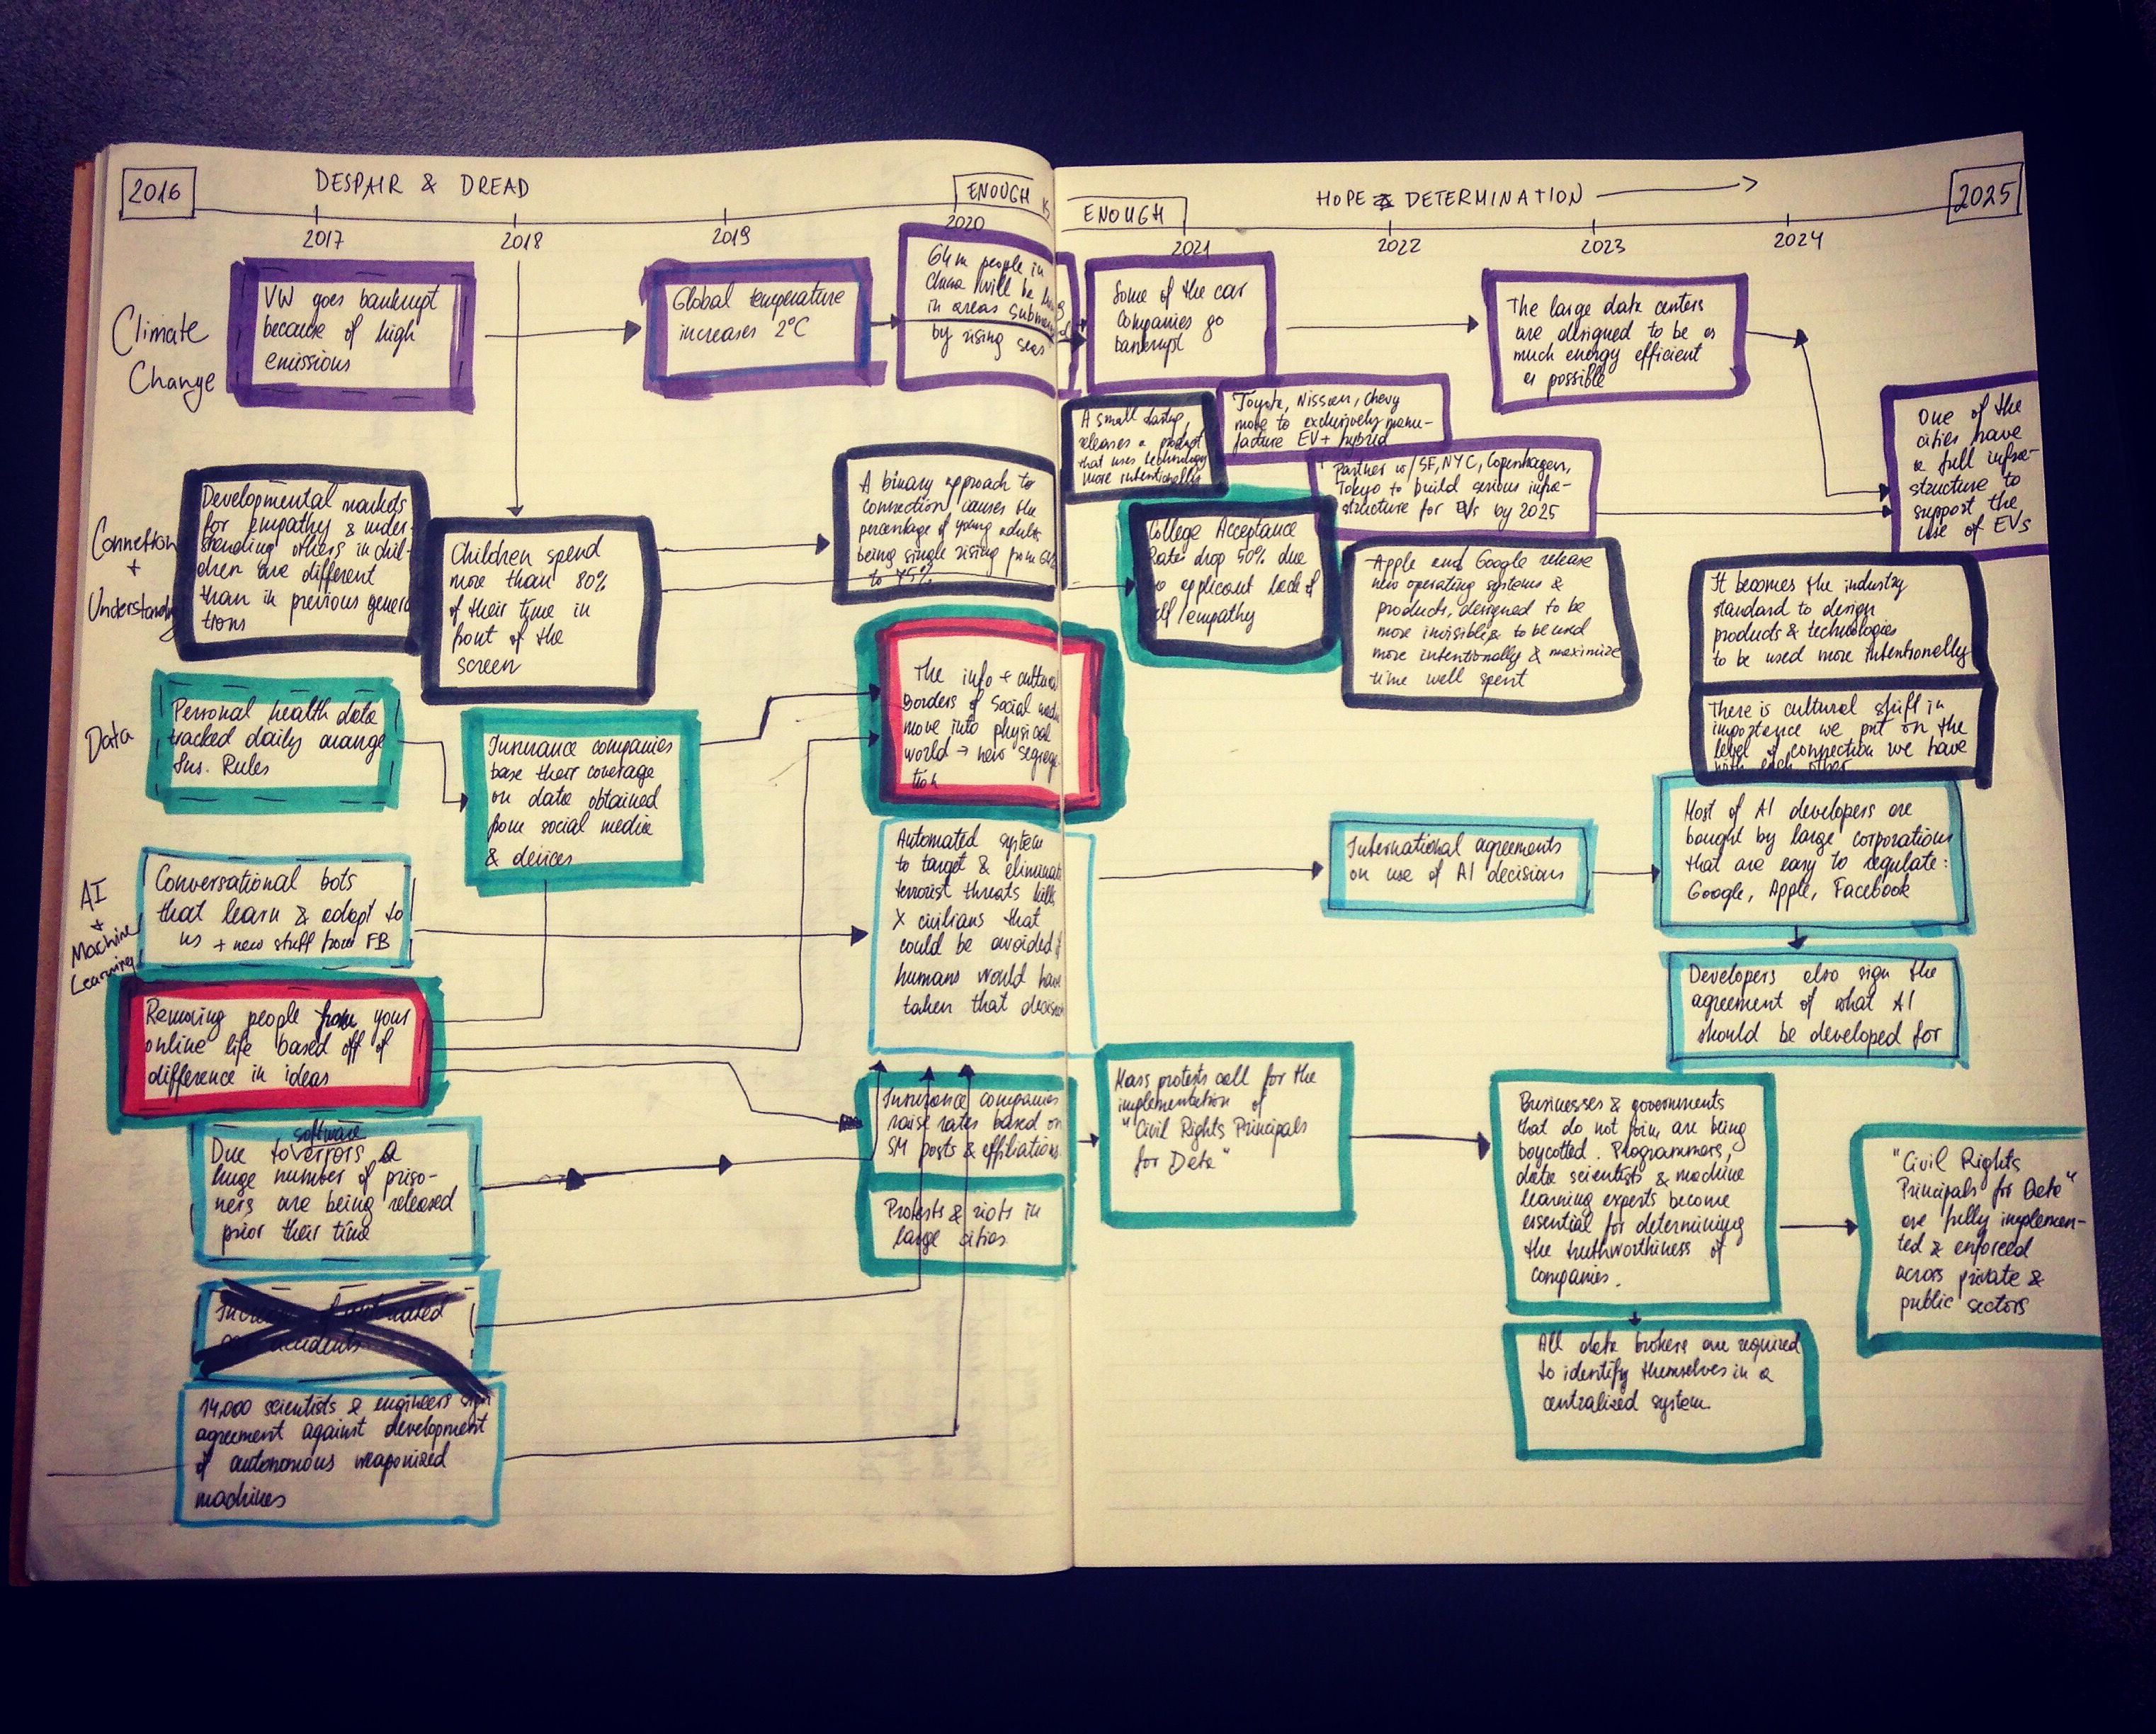 2016
DESPAIR & DREAD
ENOUGH
ENOUGH
HOPE & DETERMINATION
2025
2017
2018
2019
2020
2021
2022
2023
2024
Climate
Change
VW goes bankrupt
because of high
emissions
Global temperature
increases 2°C
64m people in
China will be
in areas
by rising seas
Some of the car
companies go
bankrupt
The large data centers
are designed to be as
much energy efficient
as possible
Toyota, Nissan, Chevy
move to exclusively manu-
facture EV + hybrid
Partner w/ SF, NYC, Copenhagen,
Tokyo to build serious infra-
structure for EVs by 2025
One of the
cities have
a full infra-
structure to
support the
use of EVs
Connection
+
Understanding
Developmental markets
for empathy & under-
standing others in chil-
dren are different
than in previous genera
tions
Children spend
more than 80%
of their time in
front of the
screen
A binary approach to
connection causes the
percentage of young adults
being single rising from
to
A small
releases a product
that uses technology
more intentionally
College Acceptance
Rates drop 50% due
to applicant lack of
empathy
Apple and Google release
new operating systems &
products, designed to be
more invisible & to be used
more intentionally & maximize
time well spent
It becomes the industry
standard to design
products & technologies
to be used more intentionally
There is cultural shift in
importance we put on the
level of connection we have
with each other
Data
Personal health data
tracked daily change
Ins. Rules
Insurance companies
base their coverage
on data obtained
from social media
& devices
The info + cultural
Borders of Social media
move into physical
world → new segrega
tion
AI
+
Machine
Learning
Conversational bots
that learn & adapt to
us + new stuff from FB
Automated system
to target & eliminate
terrorist threats kills
X civilians that
could be avoided if
humans would have
taken that decision
International agreements
on use of AI decisions
Most of AI developers are
bought by large corporations
that are easy to regulate:
Google, Apple, Facebook
Developers also sign the
agreement of what AI
should be developed for
Removing people from your
online life based off of
difference in ideas
Insurance companies
raise rates based on
SM posts & affiliations
Protests & riots in
large cities
Mass protests call for the
implementation of
"Civil Rights Principals
for Data"
Businesses & governments
that do not join are being
boycotted. Programmers,
data scientists & machine
learning experts become
essential for determining
the truthworthiness of
companies.
All data brokers are required
to identify themselves in a
centralized system.
"Civil Rights
Principals for Data"
are fully implemen-
ted & enforced
across private &
public sectors
software
Due to errors a
huge number of priso-
ners are being released
prior their time
14,000 scientists & engineers sign
agreement against development
of autonomous weaponized
machines